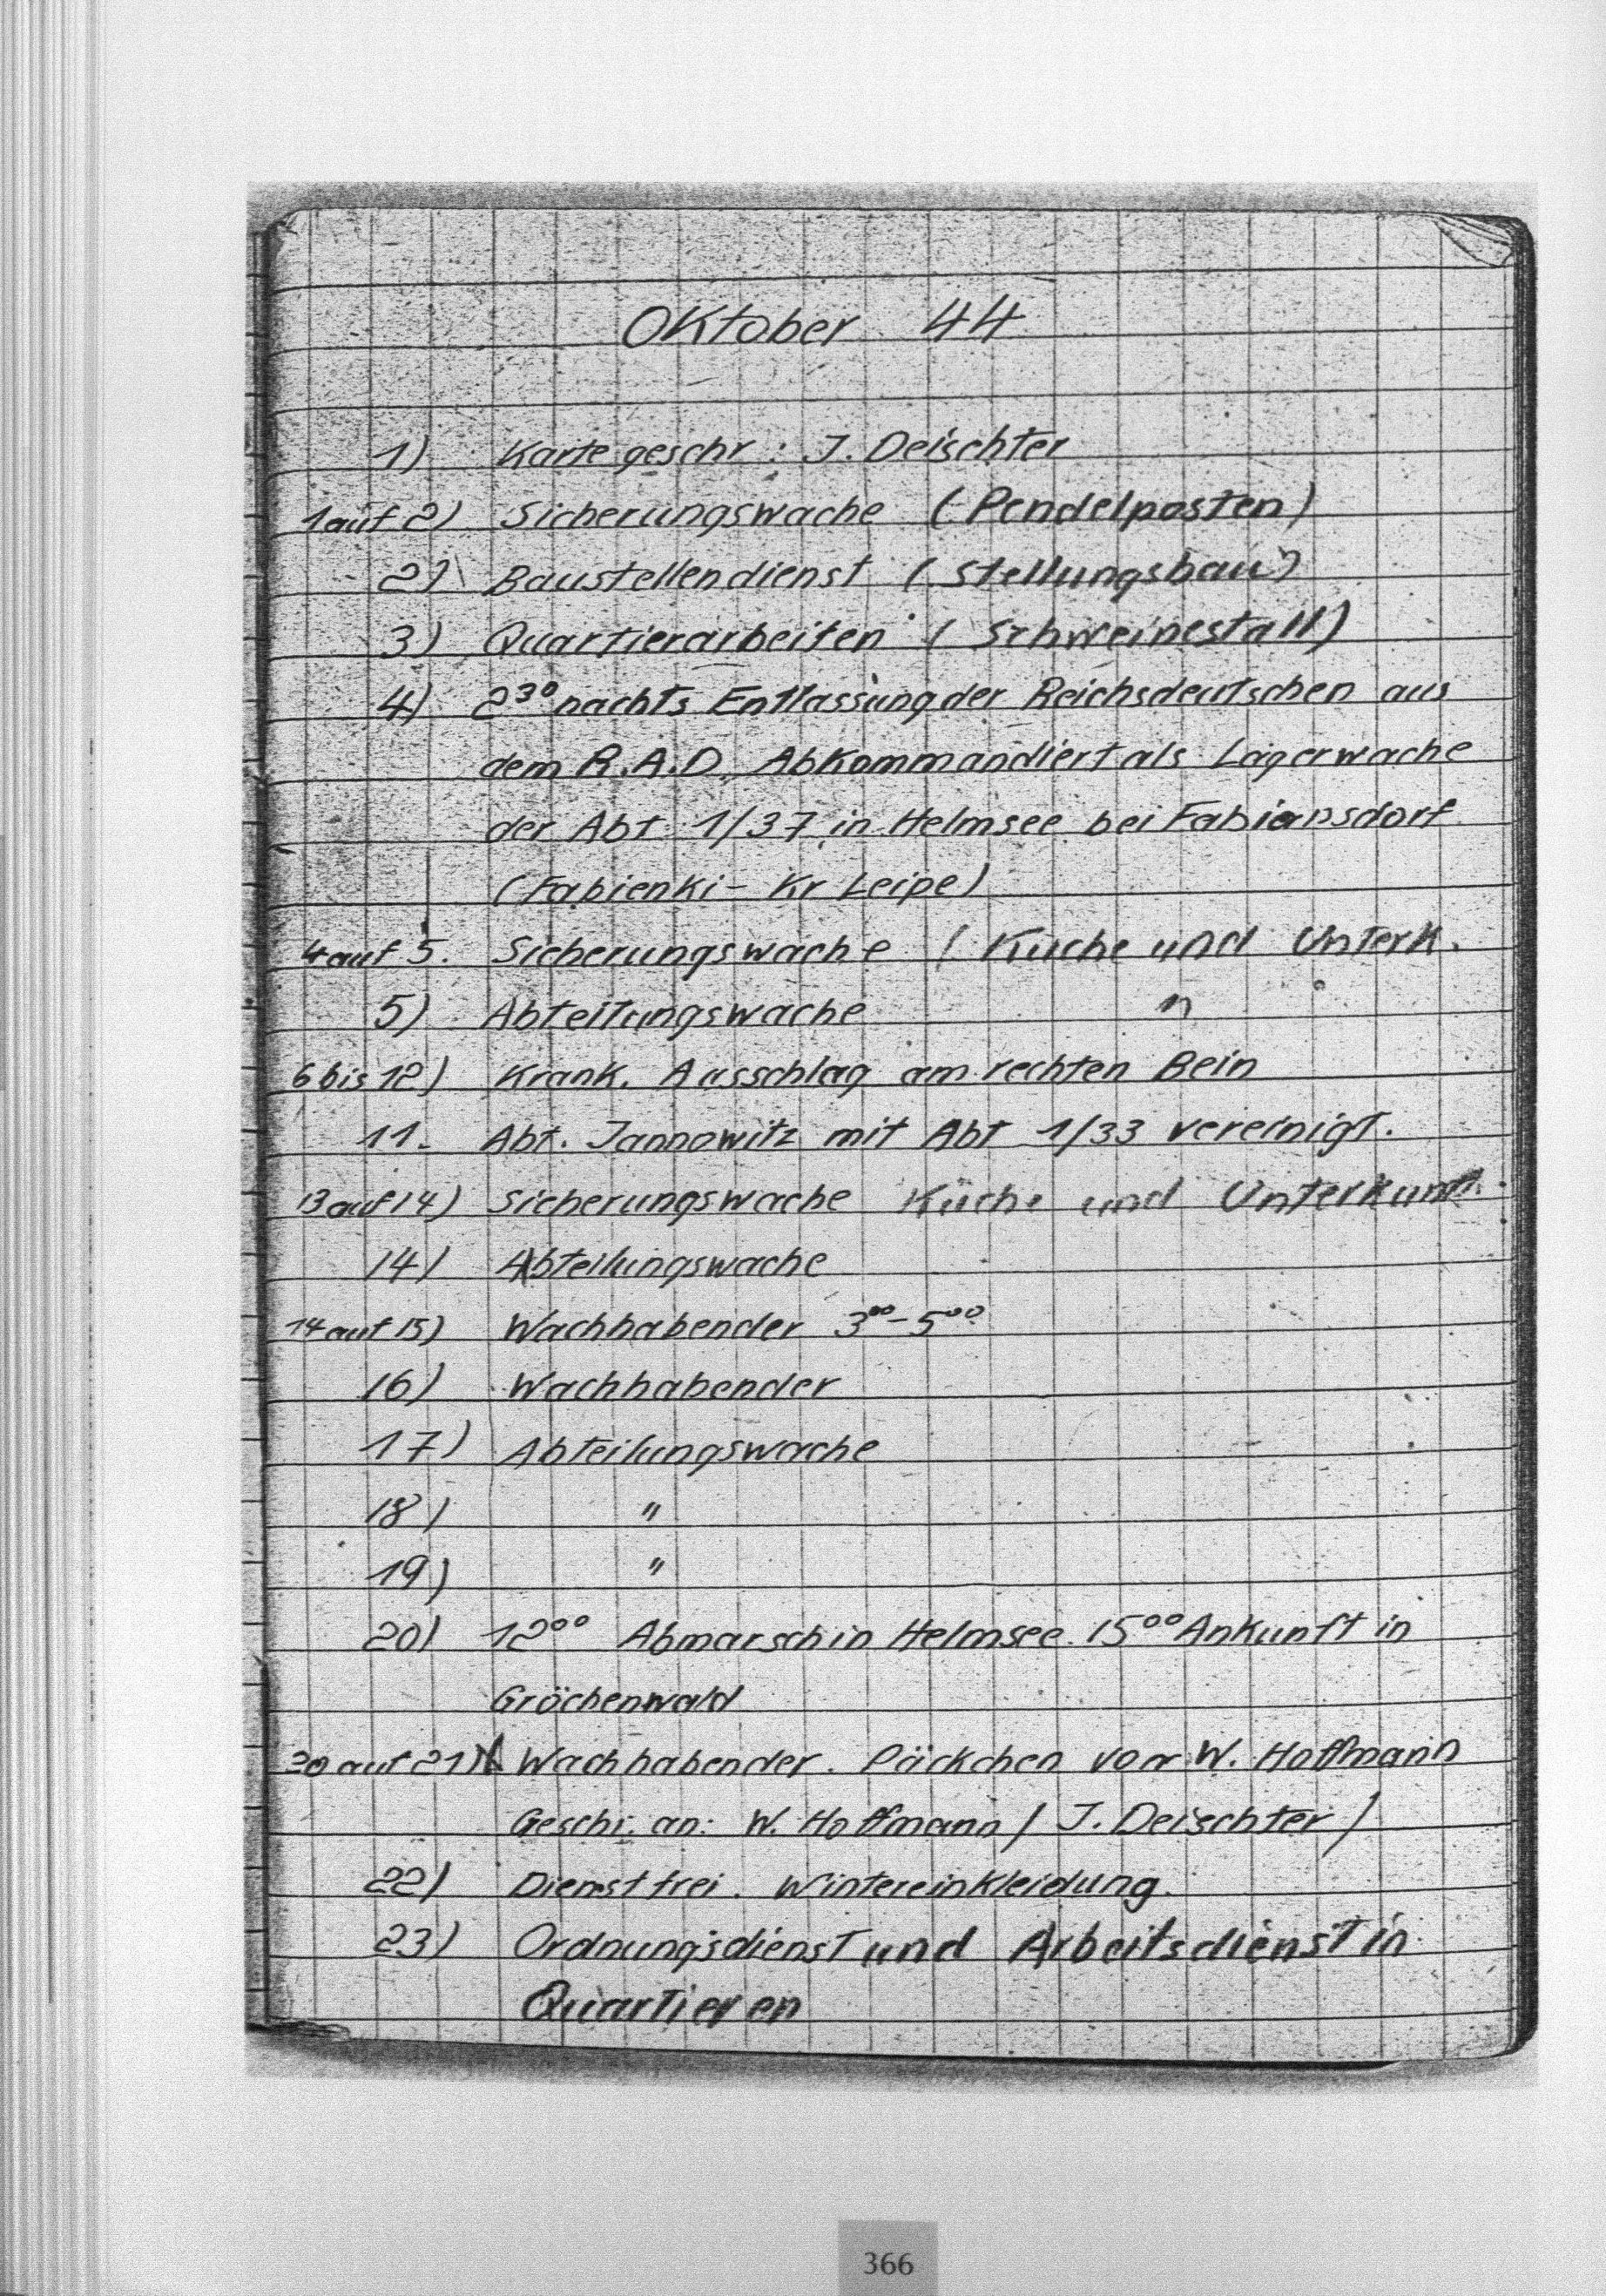 Oktober 44
1) Karte geschr: J. Deischter
1 auf 2) Sicherungswache (Pendelposten)
2) Baustellendienst (Stellungsbau)
3) Quartierarbeiten (Schweinestall)
4) 2³⁰ nachts Entlassung der Reichsdeutschen aus
dem R.A.D. Abkommandiert als Lagerwache
der Abt. 1/37 in Helmsee bei Fabiansdorf
(Fabienki - Kr Leipe)
4 auf 5. Sicherungswache ( Küche und Unterk.
5) Abteilungswache "
6 bis 12) Krank. Ausschlag am rechten Bein
11. Abt. Jannowitz mit Abt 1/33 vereinigt.
13 auf 14) Sicherungswache Küche und Unterkunft.
14) Abteilungswache
14 auf 15) Wachhabender 3⁰⁰ - 5⁰⁰
16) Wachhabender
17) Abteilungswache
18) "
19) "
20) 12⁰⁰ Abmarsch in Helmsee. 15⁰⁰ Ankunft in
Gröchenwald
20 auf 21) Wachhabender. Päckchen von W. Hoffmann
Geschr. an: W. Hoffmann / J. Deischter /
22) Dienstfrei. Wintereinkleidung.
23) Ordnungsdienst und Arbeitsdienst in
Quartieren
366